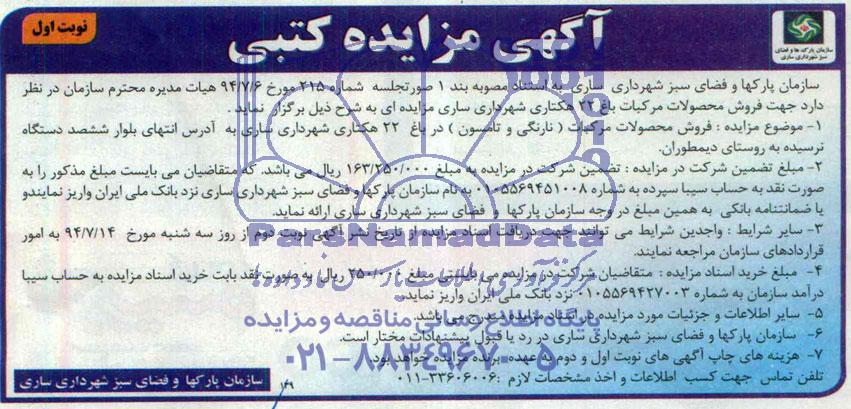 نوبت اول
آگهی مزایده کتبی
سازمان پارک ها و فضای
سبز شهرداری ساری
سازمان پارکها و فضای سبز شهرداری ساری به استناد مصوبه بند ۱ صورتجلسه شماره ۲۱۵ مورخ ۹۴/۷/۶ هیات مدیره محترم سازمان در نظر
دارد جهت فروش محصولات مرکبات باغ ۲۲ هکتاری شهرداری ساری مزایده ای به شرح ذیل برگزار نماید.
۱- موضوع مزایده : فروش محصولات مرکبات ( نارنگی و تامسون ) در باغ ۲۲ هکتاری شهرداری ساری به آدرس انتهای بلوار ششصد دستگاه
نرسیده به روستای دیمطوران.
۲- مبلغ تضمین شرکت در مزایده : تضمین شرکت در مزایده به مبلغ ۱۶۳/۲۵۰/۰۰۰ ریال می باشد. که متقاضیان می بایست مبلغ مذکور را به
صورت نقد به حساب سیبا سپرده به شماره ۰۱۰۵۵۶۹۴۵۱۰۰۸ به نام سازمان پارکها و فضای سبز شهرداری ساری نزد بانک ملی ایران واریز نمایندو
یا ضمانتنامه بانکی به همین مبلغ در وجه سازمان پارکها و فضای سبز شهرداری ساری ارائه نماید.
۳- سایر شرایط : واجدین شرایط می توانند جهت دریافت اسناد مزایده از تاریخ نشر آگهی نوبت دوم از روز سه شنبه مورخ ۹۴/۷/۱۴ به امور
قراردادهای سازمان مراجعه نمایند.
۴- مبلغ خرید اسناد مزایده : متقاضیان شرکت در مزایده می بایستی مبلغ ۲۵۰/۰۰۰ ریال به صورت نقد بابت خرید اسناد مزایده به حساب سیبا
درآمد سازمان به شماره ۰۱۰۵۵۶۹۴۲۷۰۰۳ نزد بانک ملی ایران واریز نماید.
۵- سایر اطلاعات و جزئیات مورد مزایده در اسناد مزایده مندرج می باشد.
۶- سازمان پارکها و فضای سبز شهرداری ساری در رد یا قبول پیشنهادات مختار است.
۷- هزینه های چاپ آگهی های نوبت اول و دوم به عهده برنده مزایده خواهد بود.
تلفن تماس جهت کسب اطلاعات و اخذ مشخصات لازم : ۳۳۶۰۶۰۰۶-۰۱۱
سازمان پارکها و فضای سبز شهرداری ساری
ParsNamadData
پایگاه اطلاع رسانی مناقصه و مزایده
۰۲۱-۸۸۳۴۹۶۷۰-۵